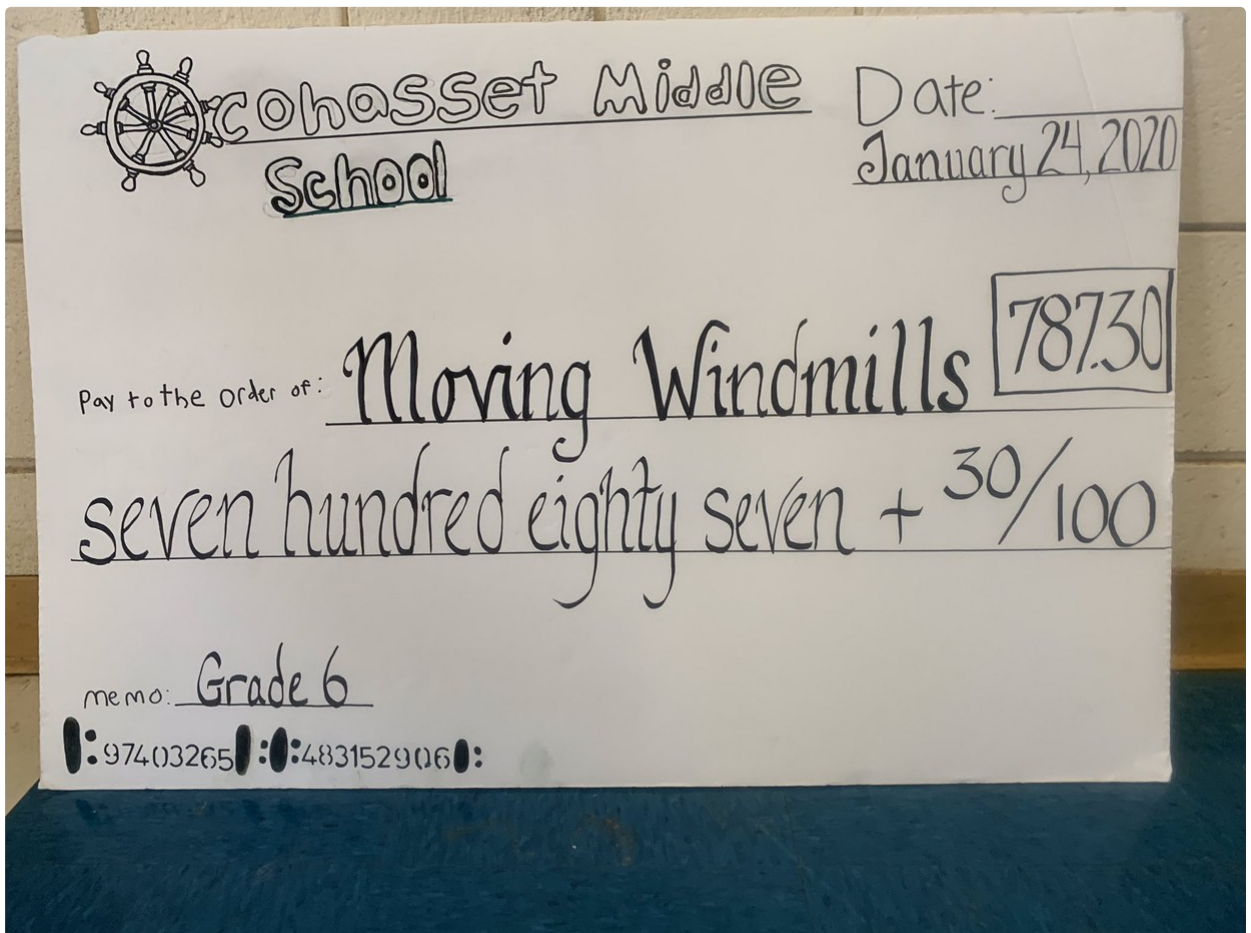 Cohasset Middle Date:
School January 24, 2020
787.30
Pay to the order of: Moving Windmills
seven hundred eighty seven + 30/100
memo: Grade 6
:97403265 : :483152906 :